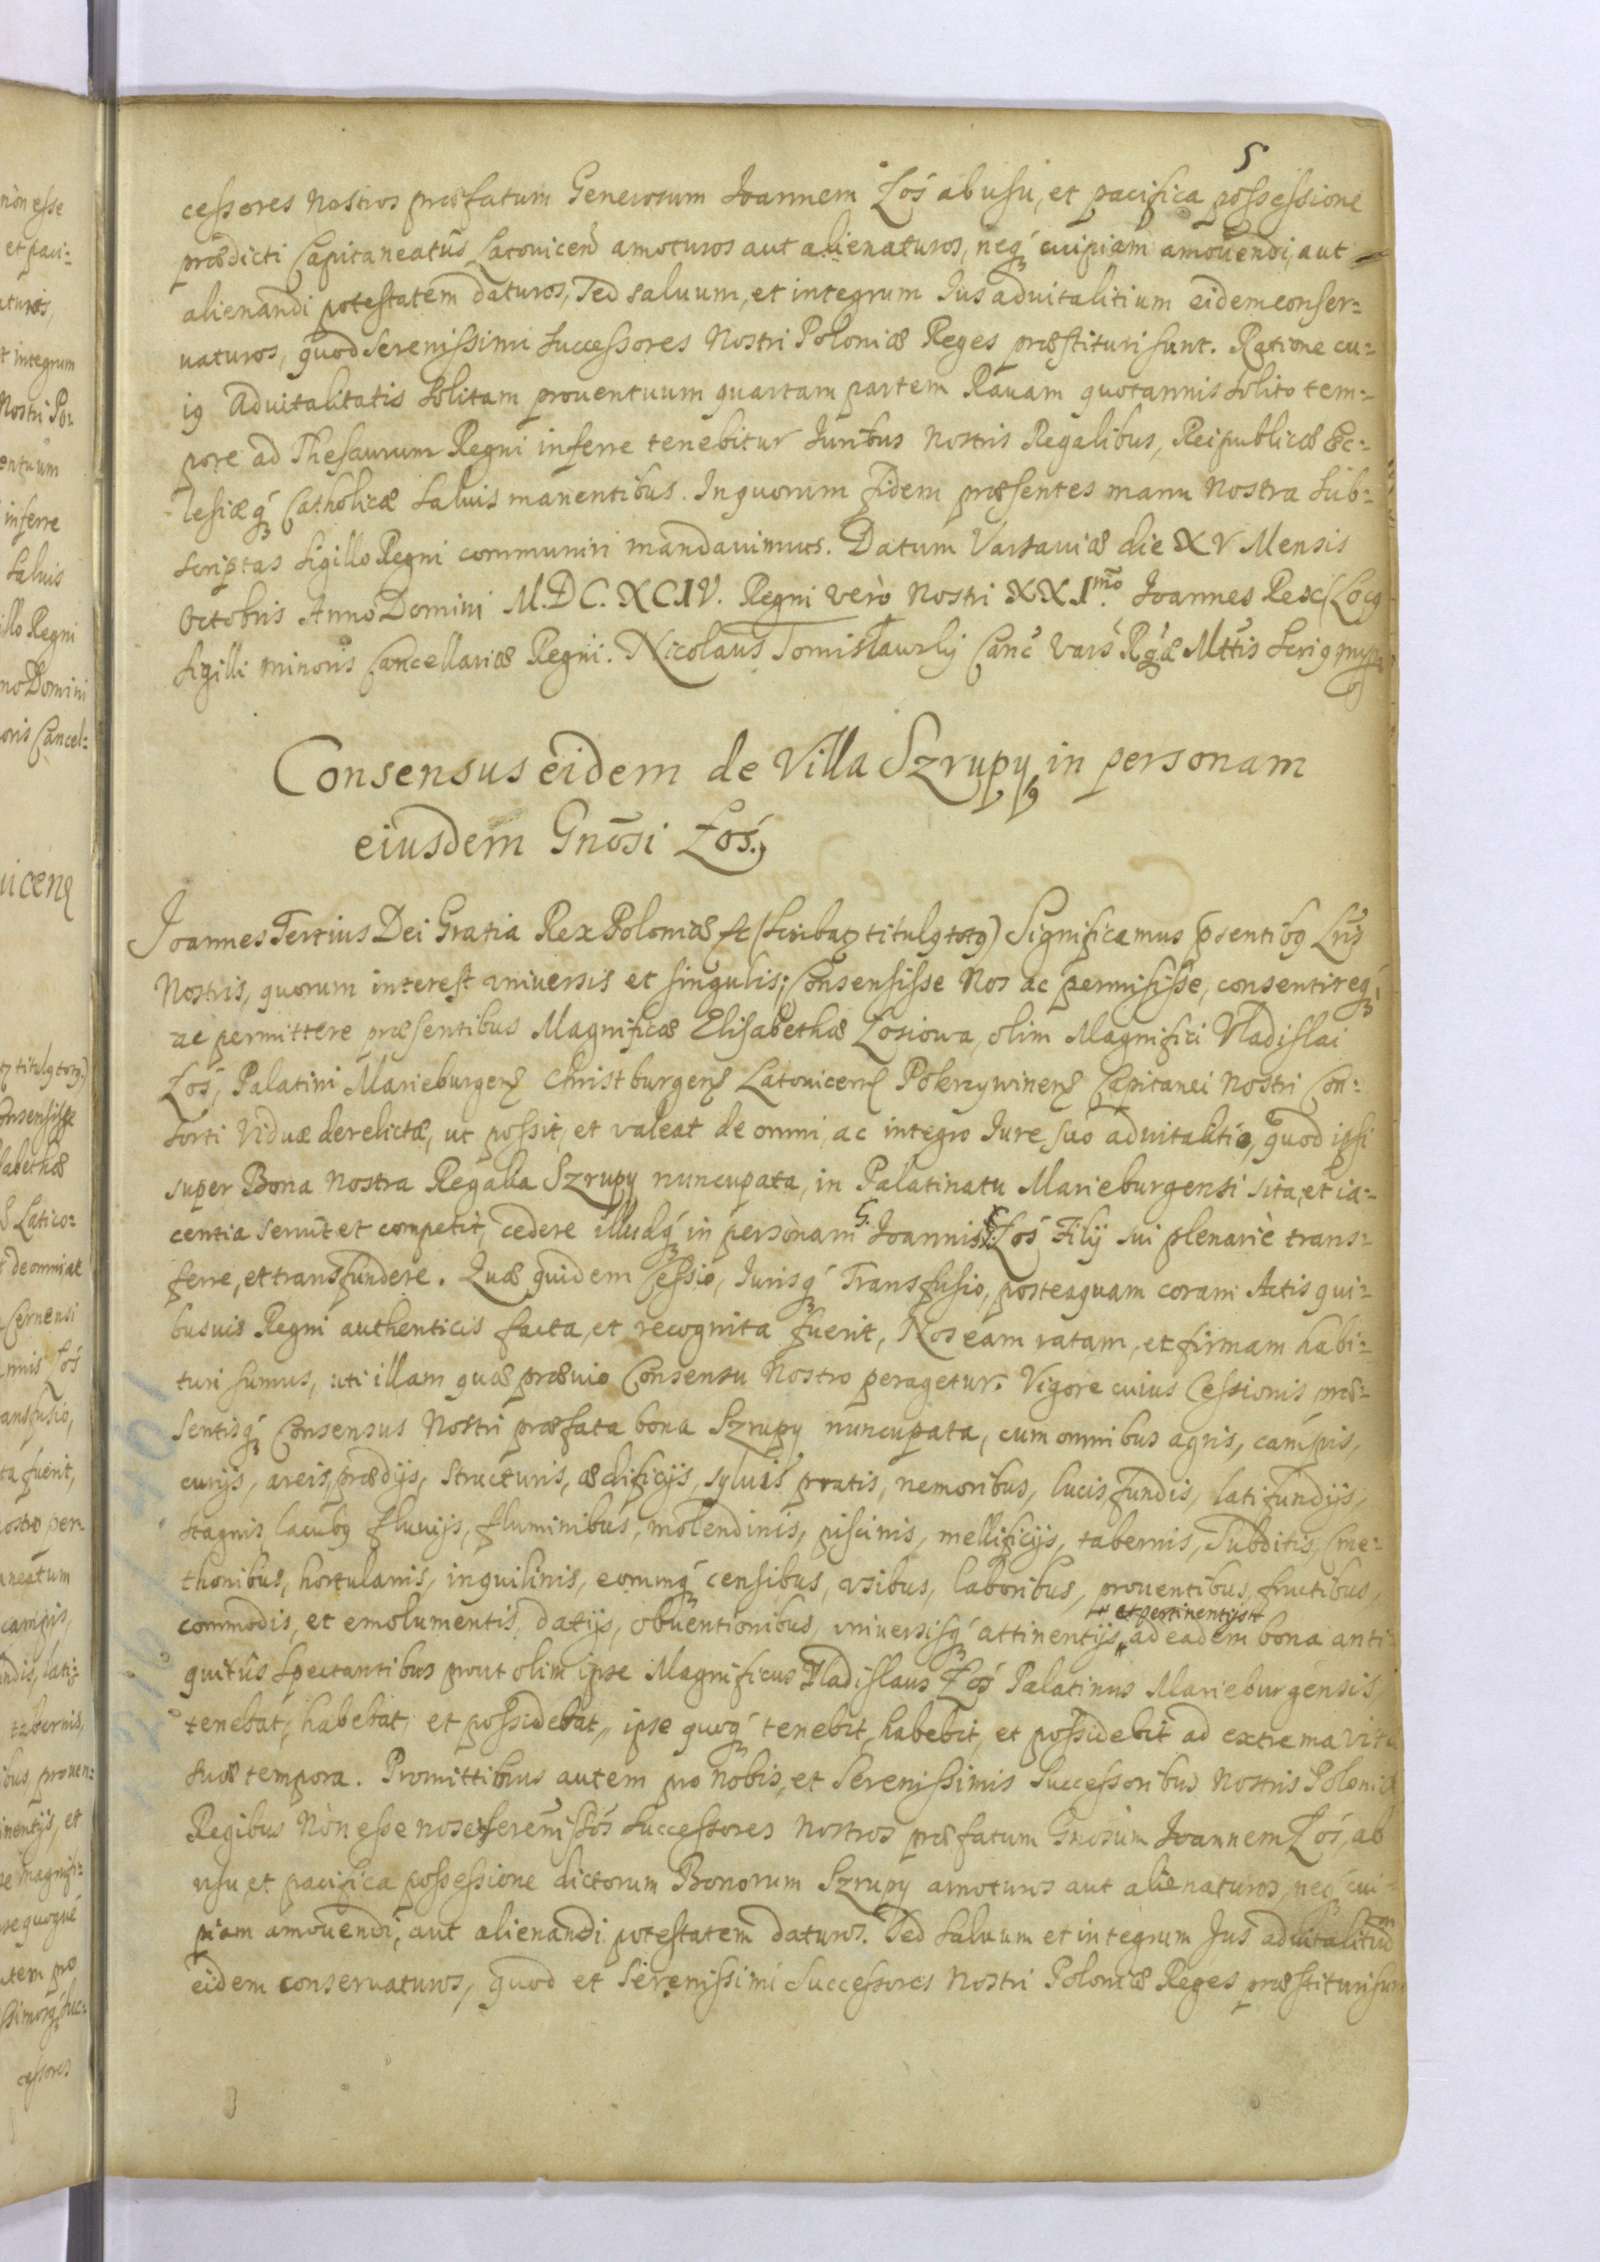 5
cessores Nostros præfatum Generosum Joannem Łoś ab usu, et pacifica possessione
prædicti Capitaneatûs Latovicen amoturos aut alienaturos, neq́ cuipiam amovendi, aut
alienandi potestatem daturos, Sed salvum, et integrum Ius advitalitium eidem conser-
vaturos, quod Serenissimi Successores Nostri Poloniæ Reges præstituri sunt. Ratione cu-
ig Advitalitatis solitam proventuum quartam partem Ravam quotannis solito tem-
pore ad Thesaurum Regni inferre tenebitur Juribus Nostris Regalibus, Reipublicæ Ec-
lesiæq́ Catholicæ salvis manentibus. In quorum fidem præsentes manu Nostra sub-
scriptas sigillo Regni communiri mandavimus. Datum Varsaviæ die XV Mensis
Octobris Anno Domini M.DC.XCIV. Regni verò Nostri XXI.mo Joannes Rex (Locg
sigilli minoris Cancellariæ Regni. Nicolaus Tomisławsky Canc Vars Rgæ Mttis
Consensus eidem de Villa Szrupy in personam
eiusdem Gnōsi Łoś.
Joannes Tertius Dei Gratia Rex Poloniæ &c (scribat titulg totg) Significamus pſentibg Lris
Nostris, quorum interest universis et singulis; Consensisse Nos ac permisisse, consentireq́
ac permittere præsentibus Magnificæ Elisabethæ Łosiowa, olim Magnifici Vladislai
Łoś, Palatini Marieburgen Christburgen Latovicen Pokrzywinen Capitanei Nostri Con-
sorti Viduæ derelictæ, ut possit, et valeat de omni, ac integro Jure suo advitalitio, quod ipsi
super Bona Nostra Regalia Szrupy nuncupata, in Palatinatu Marieburgensi sita, et ia-
centia servit et competit, cedere illudq́ in personam G. Joannis Łoś Filij sui plenariè trans-
ferre, et transfundere. Quæ quidem Cessio, Jurisq́ Transfusio, posteaquam coram Actis qui-
busvis Regni authenticis facta, et recognita fuerit, Nos eam ratam, et firmam habi-
turi sumus, uti illam quæ prævio Consensu Nostro peragetur. Vigore cuius Cessionis præ-
sentisq́ Consensus Nostri præfata bona Szrupy nuncupata, cum omnibus agris, campis,
curijs, areis, prædijs, structuris, ædificijs, sylvis pratis, nemoribus, lucis, fundis, latifundijs,
stagnis, lacubg fluvijs, fluminibus, molendinis, piscinis, mellificijs, tabernis, Subditis, Cme-
thonibus, hortulanis, inquilinis, eorumq́ censibus, usibus, laboribus, proventibus, fructibus,
commodis, et emolumentis, datijs, obventionibus, universisq́ attinentijs et pertinentijs ad eadem bona anti-
quitûs spectantibus prout olim ipse Magnificus Vladislaus Łoś Palatinus Marieburgensis,
tenebat, habebat, et possidebat, ipse quoq́ tenebit, habebit, et possidebit ad extrema vitæ
suæ tempora. Promittimus autem pro nobis, et Serenissimis Successoribus Nostris Poloniæ
Regibus Non esse nos et serenissōs Successores Nostros præfatum Gnosum Joannem Łoś, ab
usu et pacifica possessione dictorum Bonorum Szrupy amoturos aut alienaturos, neq́ cui-
piam amovendi, aut alienandi potestatem daturos. Sed salvum et integrum Jus advitalitium
eidem conservaturos, quod et Serenissimi Successores Nostri Poloniæ Reges præstituri sunt